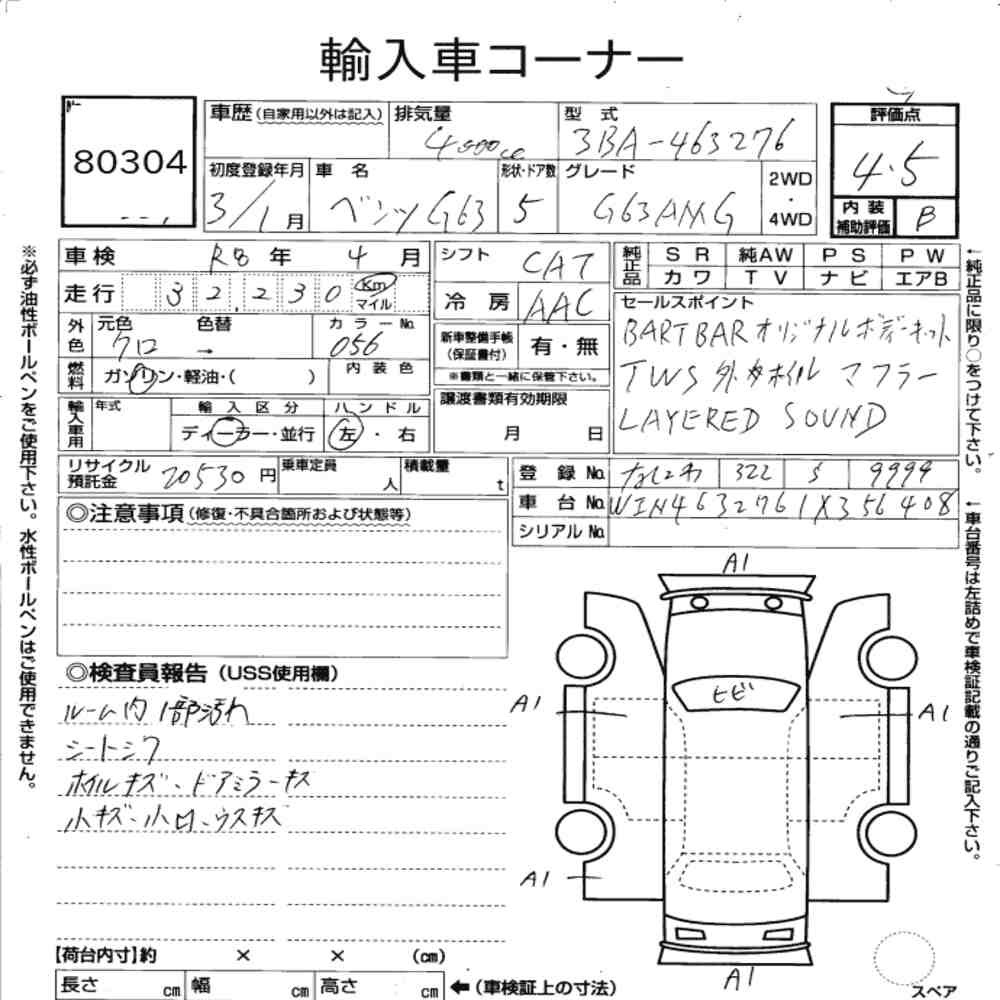 輸入車コーナー
80304
車歴 (自家用以外は記入) 排気量 4000cc 型式 3BA-463276
評価点 4.5
初度登録年月 3/1月 車名 ベンツG63 形状・ドア数 5 グレード G63AMG 2WD・4WD
内装補助評価 B
車検 R8年 4月 シフト CAT
純正品 SR 純AW PS PW
カワ TV ナビ エアB
走行 32,230 Km マイル 冷房 AAC
セールスポイント
BARTBARオリジナルボディーキット
TWS 外22ホイル マフラー
LAYERED SOUND
外色 元色 クロ 色替 → カラーNo. 056
新車整備手帳(保証書付) 有・無
※書類と一緒に保管下さい。
燃料 ガソリン・軽油・( ) 内装色
譲渡書類有効期限
月 日
輸入車用 年式 輸入区分 ハンドル
ディーラー・並行 左・右
リサイクル預託金 20530円 乗車定員 人 積載量 t
登録No. なにわ 322 S 9999
車台No. W1N4632761X356408
シリアルNo.
◎注意事項(修復・不具合箇所および状態等)
◎検査員報告(USS使用欄)
ルーム内1部汚れ
シートシワ
ホイルキズ、ドアミラーキズ
小キズ・小凹・ウスキズ
A1
ヒビ
A1
A1
A1
A1
【荷台内寸】約 × × (cm)
長さ cm 幅 cm 高さ cm ←(車検証上の寸法)
スペア
※必ず油性ボールペンをご使用下さい。水性ボールペンはご使用できません。
←純正品に限り○をつけて下さい。
←車台番号は左詰めで車検証記載の通りご記入下さい。